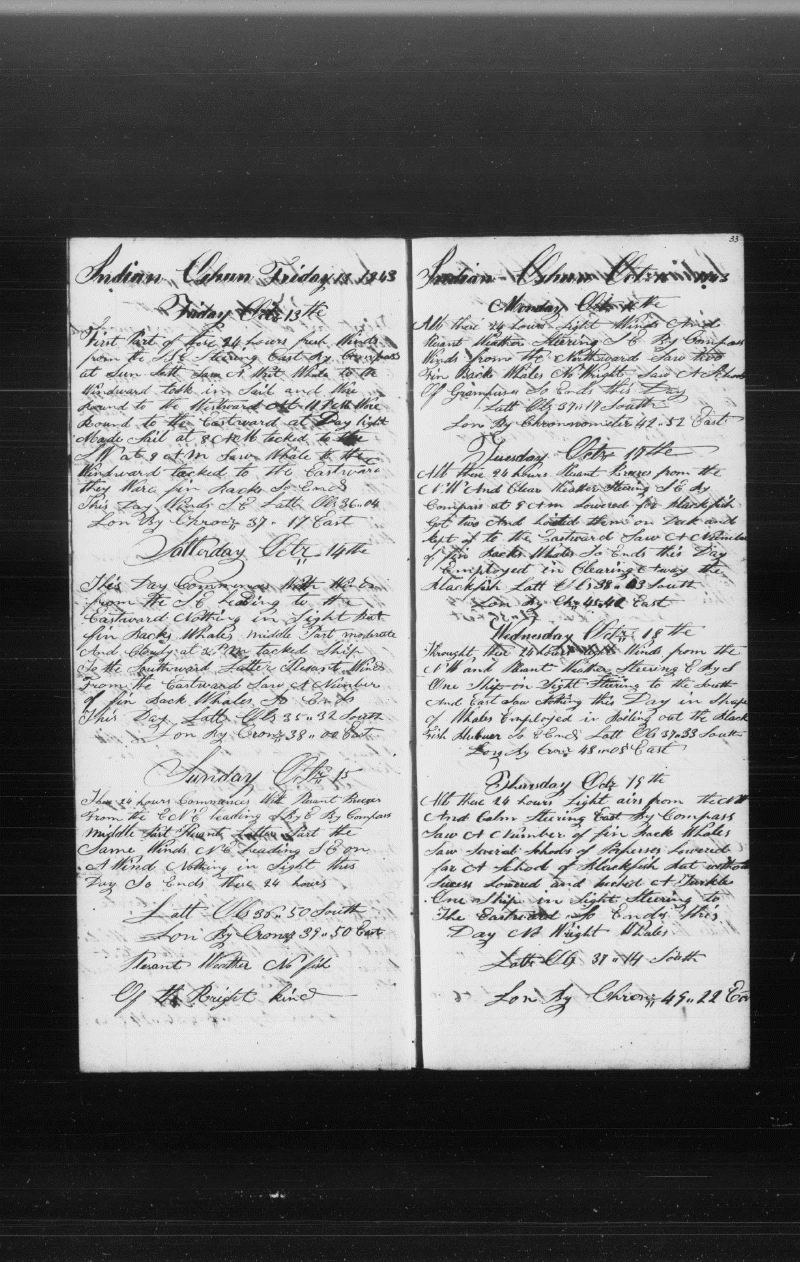 Indian Oshun Friday 13 1843
Friday Octr 13 the
First Part of these 24 hours fresh Winds
from the S.E Steering East By Compass
at Sun Sett Saw A What Whale to the
Windward took in Sail and Ware
Round to the Westward At 11 PM Ware
Round to the Eastward at Day light
Made Sail at 8 AM tacked to the
SW at 9 AM Saw Whale to the
Windward tacked to the Eastward
they Ware fin Backs So Ends
This Day Winds S E Latt Obs 36 " 04
Lon By Chroor 37 " 17 East
Satterday Octr 14 the
This Day Commences With Winds
from the S E Heading to the
Eastward Nothing in Sight But
fin Backs Whales middle Part moderate
And Cloudy at PM tacked Ship
to the Southward Latter Plasant Wind
From the Eastward Saw A Number
of fin Back Whales So Ends
This Day Latt Obs 35 " 32 South
Lon By Cronr 38 " 00 East
Sunday Octr 15
These 24 hours Commances With Pleasant Breezes
From the E N E heading S By E By Compass
middle Part Latter Part the
Same Winds N E heading S E on
A Wind Nothing in Sight this
Day So Ends these 24 hours
Latt Obs 36 " 50 South
Lon By Cronr 39 " 50 East
Plesant Weather No fish
Of the Bright kind
33
Indian Oshun Octr 1843
Monday Octr the
All these 24 hours Light Winds And
Plesant Weather Steering S E By Compass
Winds from the Northward Saw two
Fin Backs Whales No Wright Saw A School
Of Grampuses So Ends this Day
Latt Obs 37 " 17 South
Lon By Chronnometer 42 " 52 East
Tuesday Octr 17 the
All these 24 hours Plesant Breezes from the
N W And Clear Weather Steering S E By
Compass at 8 Am Lowered for Blackfish
Got two And hoisted them on Deck and
kept of to the Eastward Saw A Number
of fin Backs Whales So Ends this Day
Employed in Clearing Away the
Blackfish Latt Obs 38 " 03 South
Lon By Chr 45 " 42 East
Wednesday Octr 18 the
Throught these 24 hours Winds from the
N W and Plesant Weather Steering E By S
One Ship in Sight Steering to the South
And East Saw Nothing this Day in Shape
of Whales Employed in Boiling out the Black
Fish Blubuer So Ends Latt Obs 37 " 33 South
Lon By Cronr 48 " 05 East
Thursday Octr 19 th
All these 24 hours Light airs from the N W
And Calm Steering East By Compass
Saw A Number of fin Back Whales
Saw Sveral Schools of Poperses Lowered
for A School of Blackfish But without
Sucess Lowered and hucked A Turkle
One Ship in Sight Steering to
The Eastward So Ends this
Day No Wright Whales
Latt Obs 37 " 14 South
Lon By Chronr 49 " 22 East